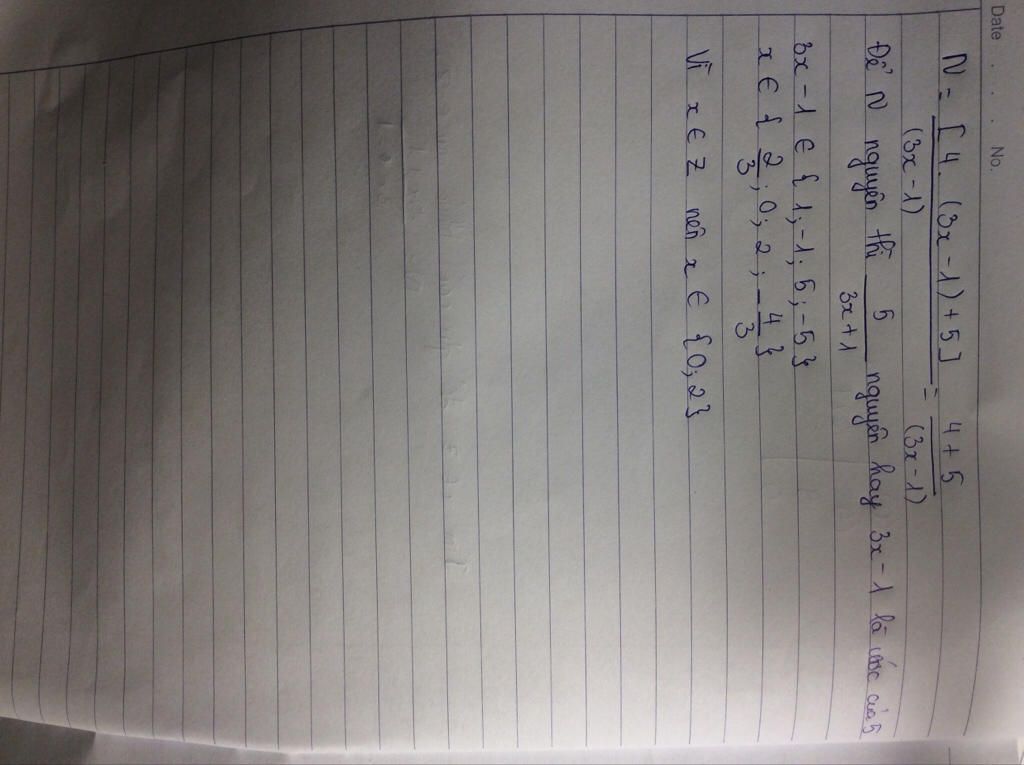 Date . . . No.
N = [4. (3x - 1) + 5] / (3x - 1) = 4 + 5 / (3x - 1)
Để N nguyên thì 5 / 3x + 1 nguyên hay 3x - 1 là ước của 5
3x - 1 ∈ {1; -1; 5; -5}
x ∈ {2/3; 0; 2; -4/3}
Vì x ∈ Z nên x ∈ {0; 2}